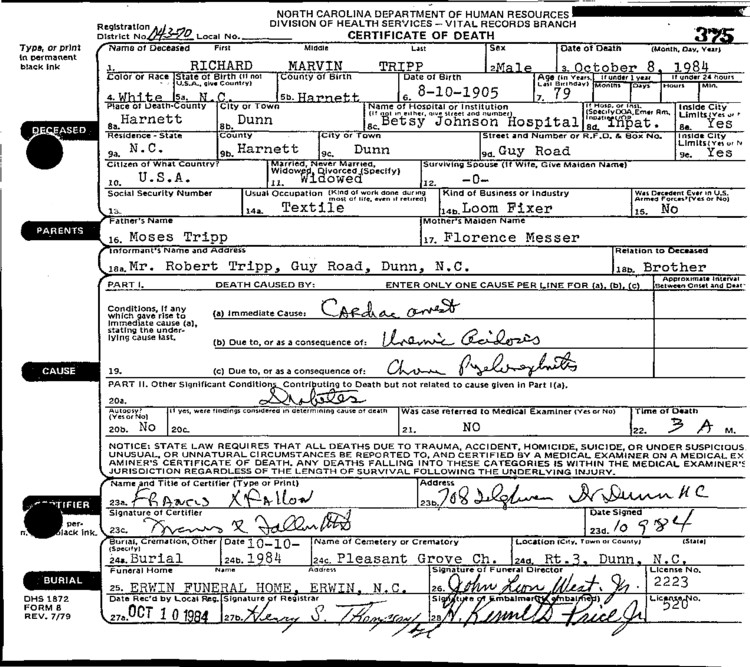 NORTH CAROLINA DEPARTMENT OF HUMAN RESOURCES
DIVISION OF HEALTH SERVICES — VITAL RECORDS BRANCH
Registration District No. 043-70 Local No.
CERTIFICATE OF DEATH
375
Type, or print in permanent black ink
Name of Deceased First Middle Last Sex Date of Death (Month, Day, Year)
1. RICHARD MARVIN TRIPP 2. Male 3. October 8, 1984
Color or Race State of Birth (If not U.S.A., give Country) County of Birth Date of Birth Age (In Years, Last Birthday) If under 1 year Months Days If under 24 hours Hours Min.
4. White 5a. N.C. 5b. Harnett 6. 8-10-1905 7. 79
Place of Death-County City or Town Name of Hospital or Institution (If not in either, give street and number) If Hosp. or Inst. (Specify DOA, Emer Rm, Inpatient/OP) Inside City Limits (Yes or
8a. Harnett 8b. Dunn 8c. Betsy Johnson Hospital 8d. Inpat. 8e. Yes
DECEASED
Residence - State County City or Town Street and Number or R.F.D. & Box No. Inside City Limits (Yes or N
9a. N.C. 9b. Harnett 9c. Dunn 9d. Guy Road 9e. Yes
Citizen of What Country? Married, Never Married, Widowed, Divorced (Specify) Surviving Spouse (If Wife, Give Maiden Name)
10. U.S.A. 11. Widowed 12. -0-
Social Security Number Usual Occupation (Kind of work done during most of life, even if retired) Kind of Business or Industry Was Decedent Ever in U.S. Armed Forces? (Yes or No)
13. 14a. Textile 14b. Loom Fixer 15. No
Father's Name Mother's Maiden Name
PARENTS
16. Moses Tripp 17. Florence Messer
Informant's Name and Address Relation to Deceased
18a. Mr. Robert Tripp, Guy Road, Dunn, N.C. 18b. Brother
PART I. DEATH CAUSED BY: ENTER ONLY ONE CAUSE PER LINE FOR (a), (b), (c) Approximate Interval Between Onset and Deat
Conditions, if any which gave rise to immediate cause (a), stating the underlying cause last.
(a) Immediate Cause: Cardiac arrest
(b) Due to, or as a consequence of: Uremic Acidosis
CAUSE
19. (c) Due to, or as a consequence of:
PART II. Other Significant Conditions Contributing to Death but not related to cause given in Part I(a).
20a. Diabetes
Autopsy? (Yes or No) If yes, were findings considered in determining cause of death Was case referred to Medical Examiner (Yes or No) Time of Death
20b. No 20c. 21. NO 22. 3 A M.
NOTICE: STATE LAW REQUIRES THAT ALL DEATHS DUE TO TRAUMA, ACCIDENT, HOMICIDE, SUICIDE, OR UNDER SUSPICIOUS
UNUSUAL, OR UNNATURAL CIRCUMSTANCES BE REPORTED TO, AND CERTIFIED BY A MEDICAL EXAMINER ON A MEDICAL EX
AMINER'S CERTIFICATE OF DEATH. ANY DEATHS FALLING INTO THESE CATEGORIES IS WITHIN THE MEDICAL EXAMINER'S
JURISDICTION REGARDLESS OF THE LENGTH OF SURVIVAL FOLLOWING THE UNDERLYING INJURY.
Name and Title of Certifier (Type or Print) Address
23a. FRANCIS X FALLON 23b. 708 Dr Dunn NC
Signature of Certifier Date Signed
23c. Francis X Fallon 23d. 10 9 84
Burial, Cremation, Other (Specify) Date Name of Cemetery or Crematory Location (City, Town or County) (State)
24a. Burial 24b. 10-10-1984 24c. Pleasant Grove Ch. 24d. Rt.3, Dunn, N.C.
BURIAL
Funeral Home Name Address Signature of Funeral Director License No.
25. ERWIN FUNERAL HOME, ERWIN, N.C. 26. John Leon West, Jr. 2223
Date Rec'd by Local Reg. Signature of Registrar Signature of Embalmer (If embalmed) License No.
27a. OCT 10 1984 27b. Henry S. Thompson 28. W. Kenneth Price Jr 520
DHS 1872
FORM 8
REV. 7/79